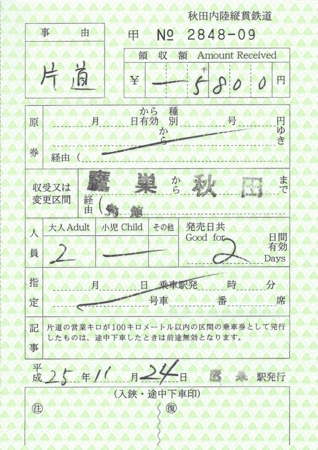 秋田内陸縦貫鉄道
事由 甲 № 2848-09
片道
領収額 Amount Received
¥ 一5800 円
原券 月 日から有効 種別 号 円
から ゆき
経由( )
収受又は変更区間 鷹巣 から 秋田 まで
経由(角館 )
人員 大人Adult 小児Child その他
2
発売日共 Good for 2 日間有効 Days
指定 月 日 乗車駅発 時 分
号車 番 席
記事 片道の営業キロが100キロメートル以内の区間の乗車券として発行
したものは、途中下車したときは前途無効となります。
平成 25年 11月 24日 駅発行
(入鋏・途中下車印)